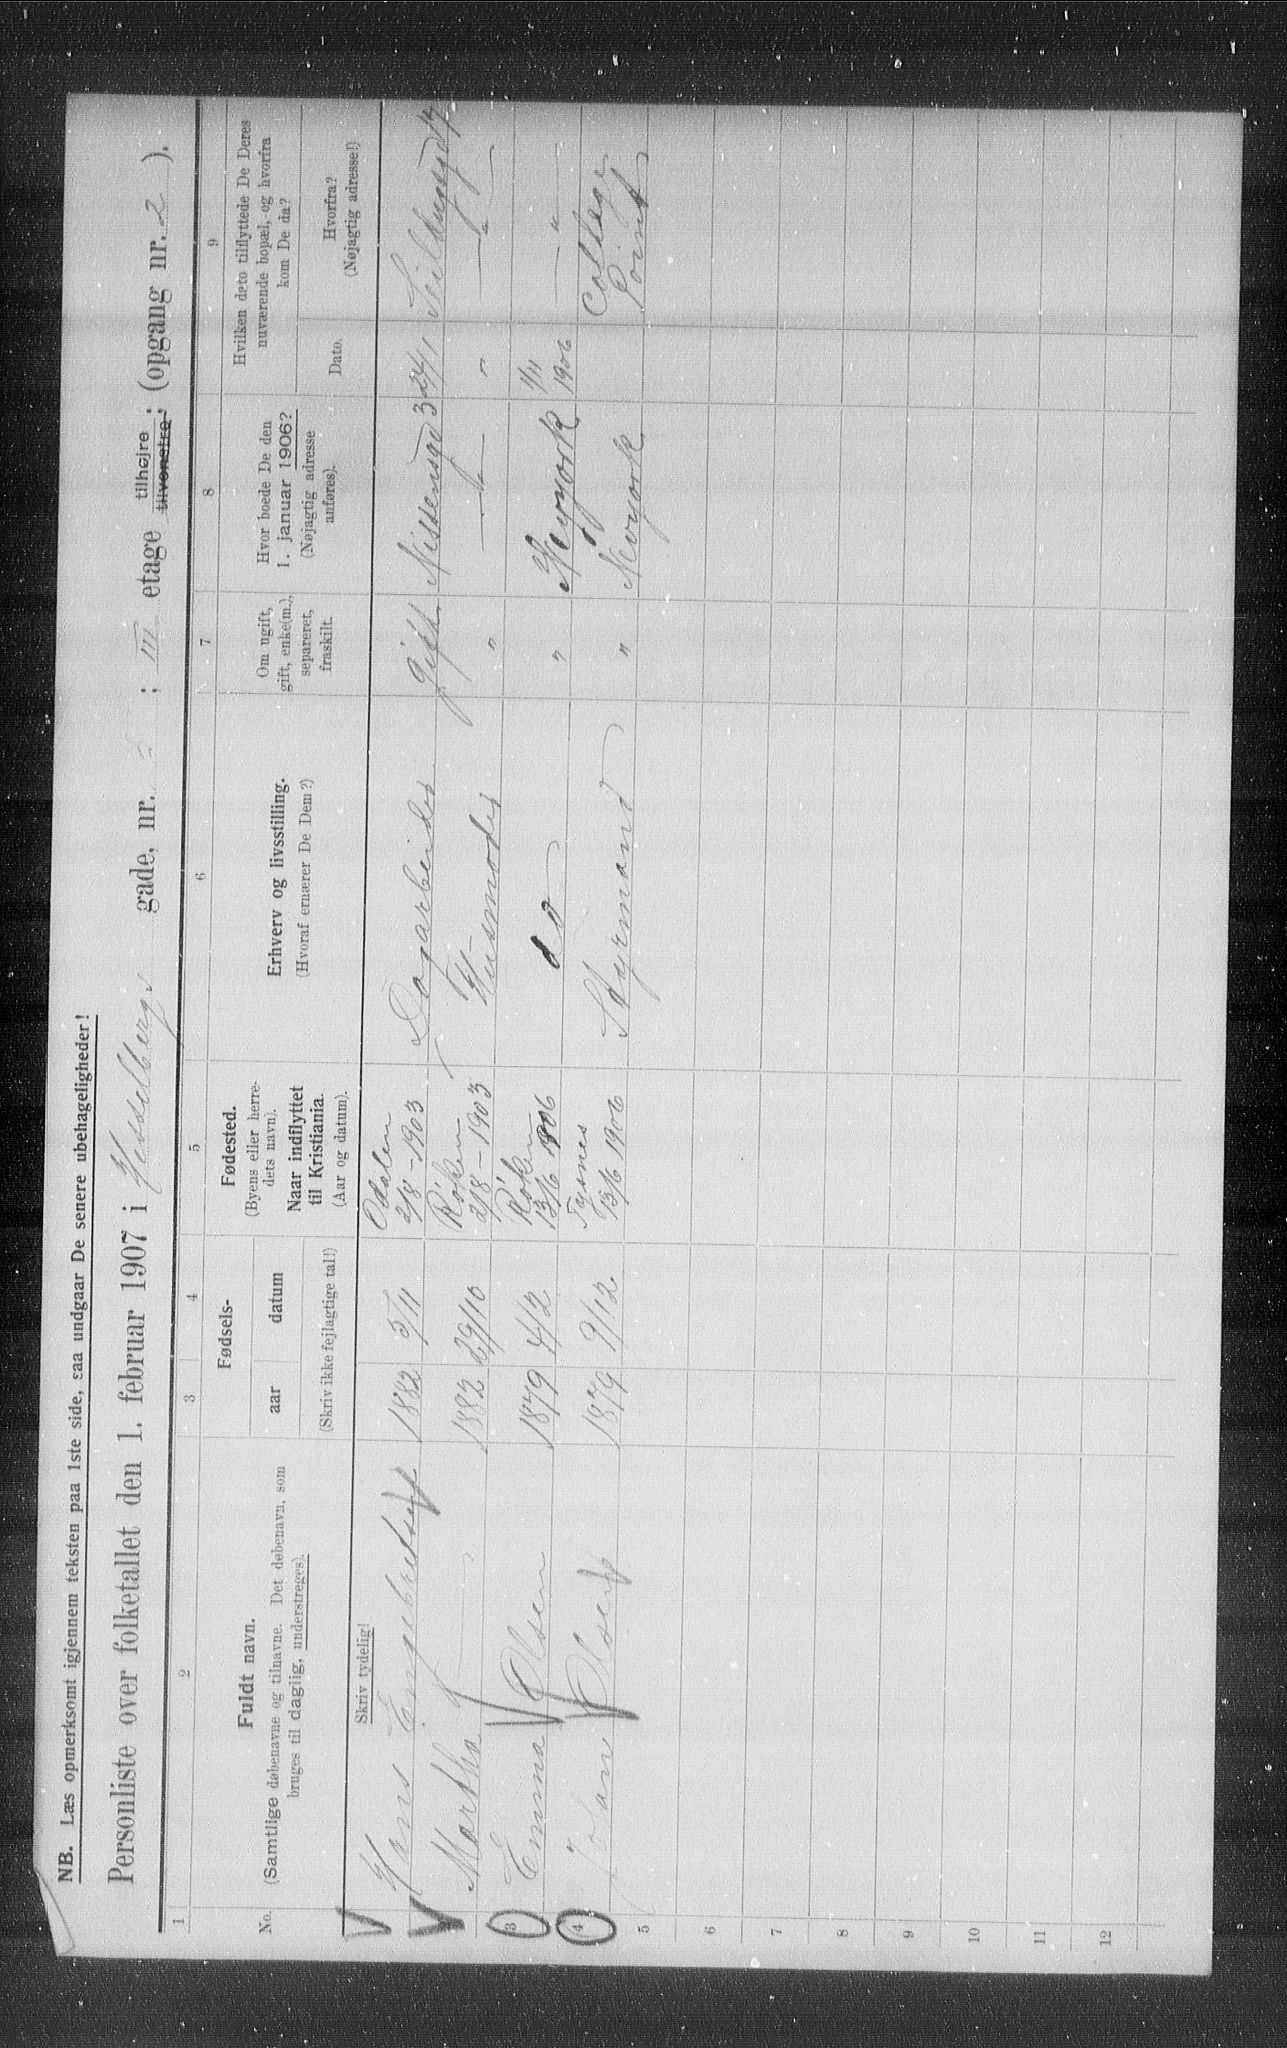 NB. Læs opmerksomt igjennem teksten paa 1ste side, saa undgaar De senere ubehageligheder!
Personliste over folketallet den 1. februar 1907 i Hesselbergs gade, nr. ; III etage tilhøjre tilvenstre; (opgang nr. 2 ).
1 2 3 4 5 6 7 8 9
No.
Fuldt navn.
(Samtlige døbenavne og tilnavne. Det døbenavn, som
bruges til daglig, understreges).
Fødsels-
aar datum
(Skriv ikke fejlagtige tal!)
Fødested.
(Byens eller herre-
dets navn).
Naar indflyttet
til Kristiania.
(Aar og datum).
Erhverv og livsstilling.
(Hvoraf ernærer De Dem?)
Om ugift,
gift, enke(m.),
separeret,
fraskilt.
Hvor boede De den
1. januar 1906?
(Nøjagtig adresse
anføres).
Hvilken dato tilflyttede De Deres
nuværende bopæl, og hvorfra
kom De da?
Dato.
Hvorfra?
(Nøjagtig adresse!)
Skriv tydelig!
Hans Engebretsen 1882 5/11 Odalen 2/8 - 1903 Dagarbeider gift Nissensgd 3 24/1
2 Martha 1882 29/10 Röken 2/8 - 1903 Husmoder " — " — " — " —
3 Emma Olsen 1879 4/2 Röken 13/6 1906 do " Newyork 1/11 1906 — " —
4 Johan Olsen 1879 9/12 Tysnes 13/6 1906 Styrmand " Newyork College Point
5
6
7
8
9
10
11
12